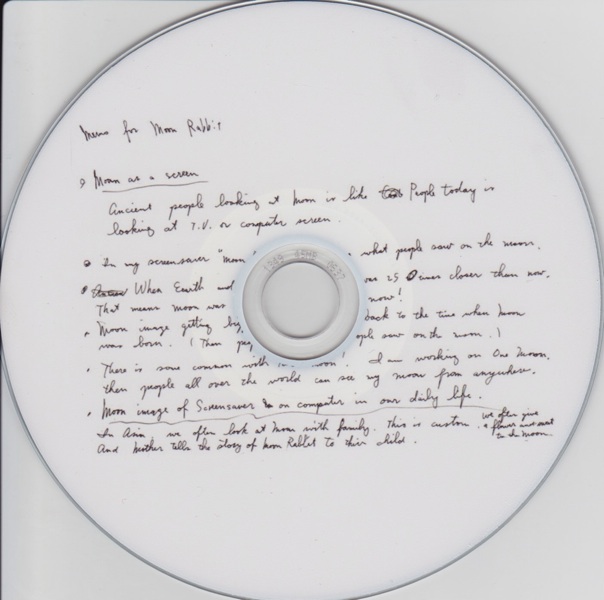 Memo for Moon Rabbit
Moon as a screen
Ancient people looking at Moon is like People today is
looking at T.V. or computer screen.
In my screensaver "moon what people saw on the moon.
When Earth and 25 times closer than now.
That means moon was now!
Moon image getting big back to the time when moon
was born. (Then people saw on the moon.)
There is some common with moon! I am working on One Moon,
then people all over the world can see my moon from anywhere.
Moon image of Screensaver on computer in our daily life.
In Asia we often look at Moon with family. This is custom. we often give
a flower and
to the moon.
And Mother tells the story of Moon Rabbit to their child.